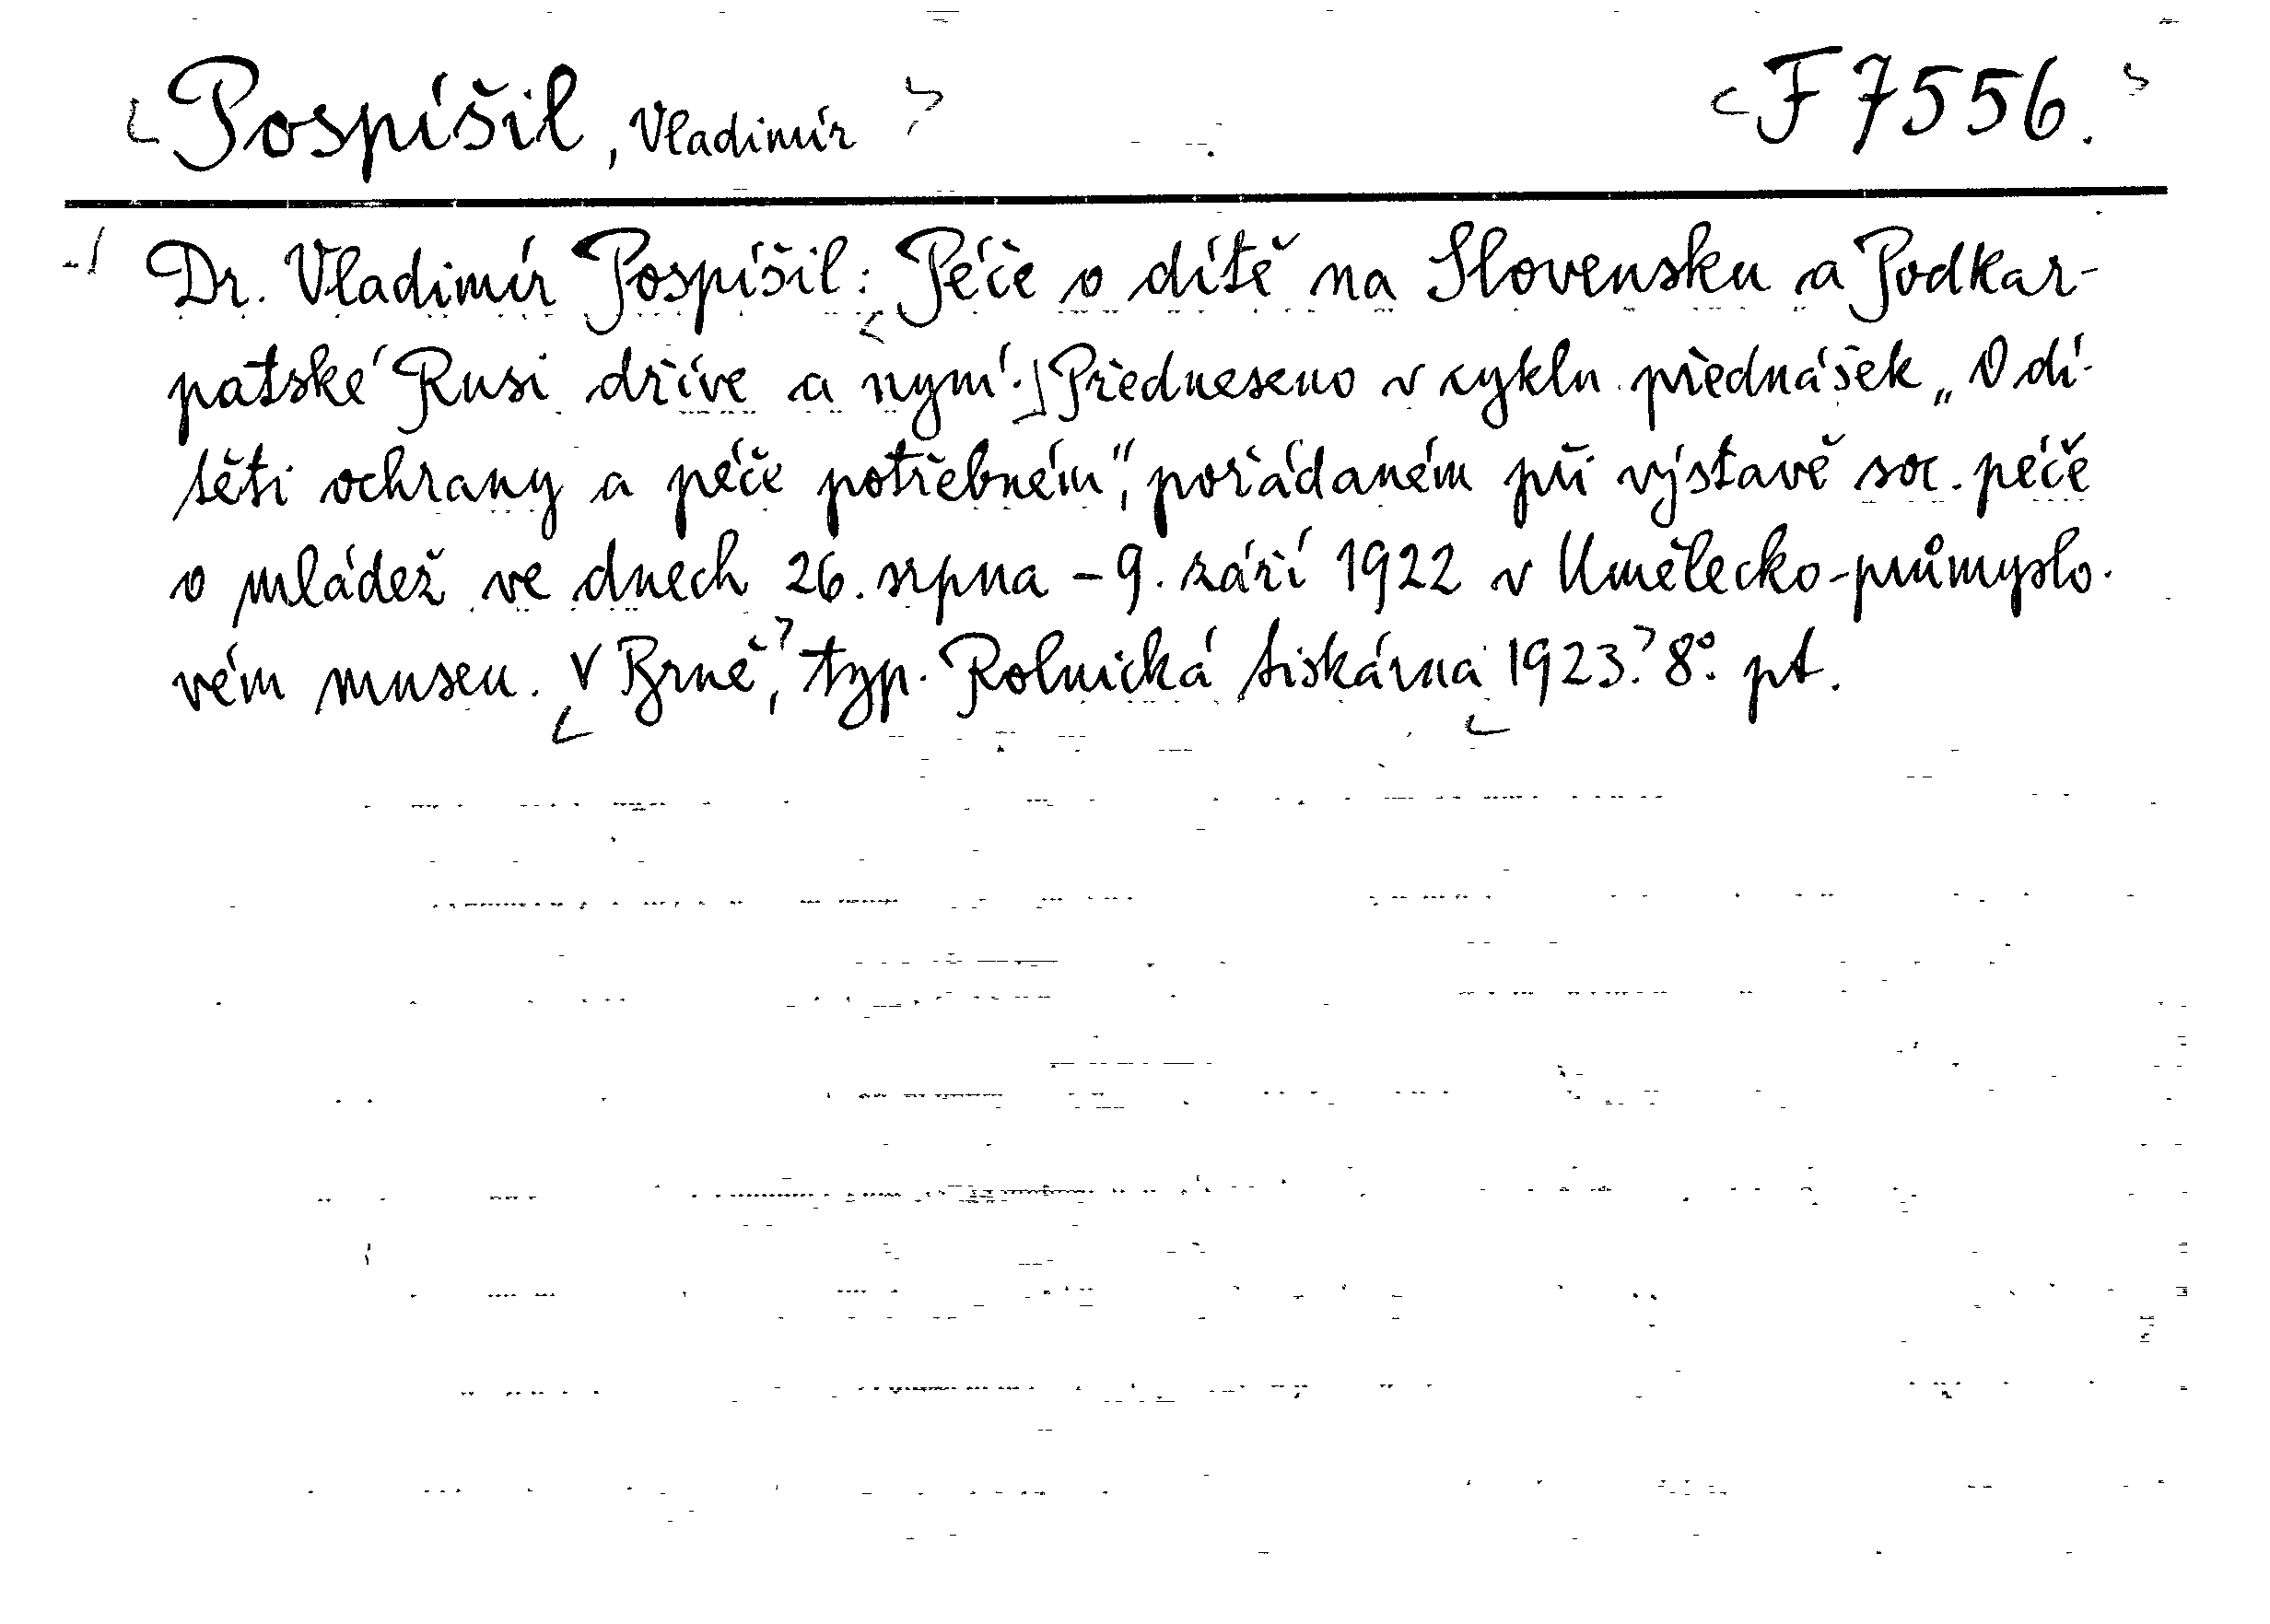 Pospíšil, Vladimír F 7556.
Dr. Vladimír Pospíšil: Péče o dítě na Slovensku a Podkar-
patské Rusi dříve a nyní. Předneseno v cyklu přednášek „O dí-
těti ochrany a péče potřebném“, pořádaném při výstavě soc. péče
o mládež ve dnech 26. srpna - 9. září 1922 v Umělecko-průmyslo-
vém museu. V Brně, typ. Rolnická tiskárna 1923. 8°. pt.